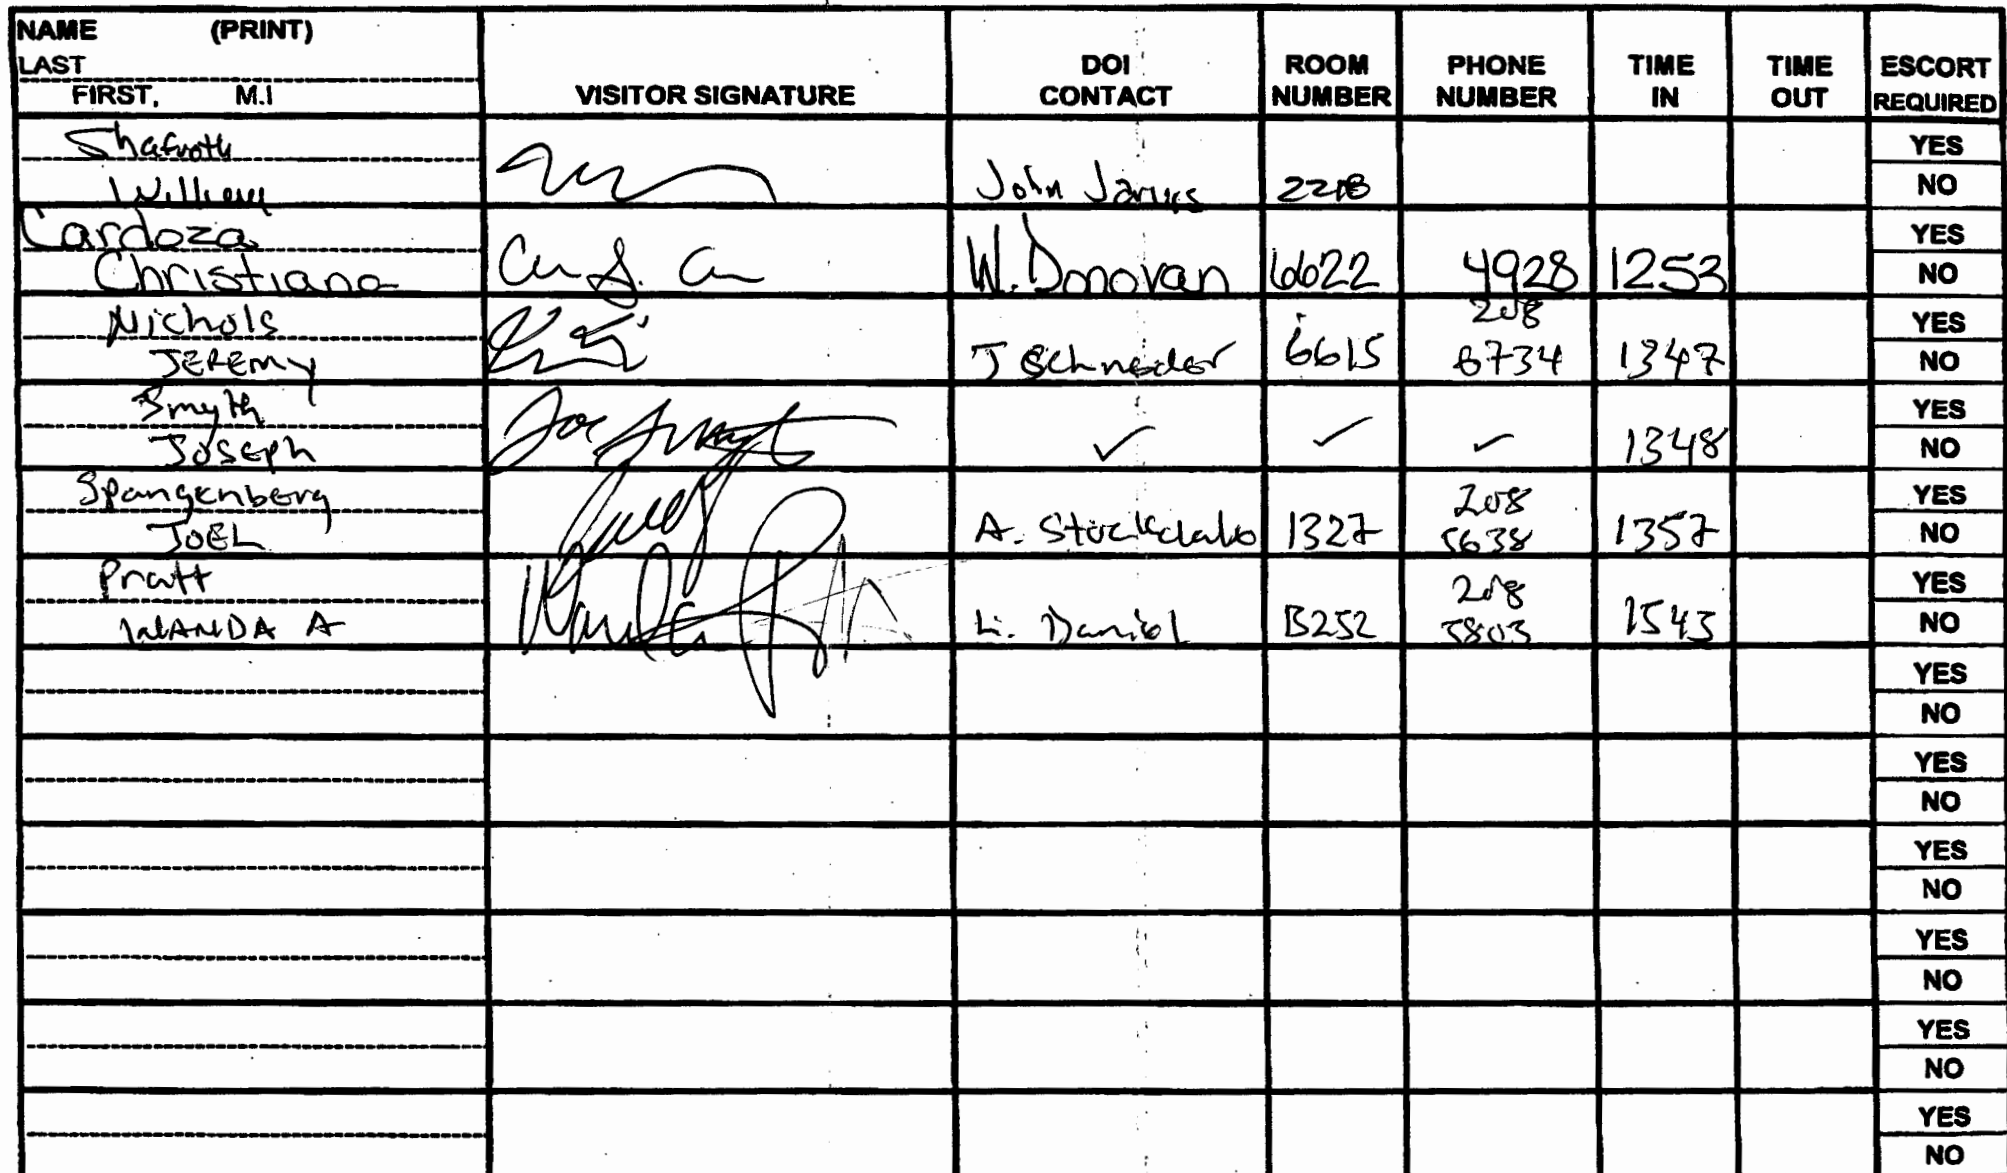 NAME (PRINT)
LAST
FIRST, M.I
VISITOR SIGNATURE
DOI CONTACT
ROOM NUMBER
PHONE NUMBER
TIME IN
TIME OUT
ESCORT REQUIRED
Shafroth
William
John
YES
NO
Cardoza
Christiana
W. Donovan 6622 4928 1253
YES
NO
Nichols
JEREMY
J Schneider 6615 208 6734 1347
YES
NO
Smyth
JOSEPH
Joe Smyth
✓ ✓ ✓ 1348
YES
NO
Spangenberg
JOEL
A. Stockdale 1327 208 5638 1357
YES
NO
Pratt
WANDA A
L. Daniel B252 208 5803 1543
YES
NO
YES
NO
YES
NO
YES
NO
YES
NO
YES
NO
YES
NO